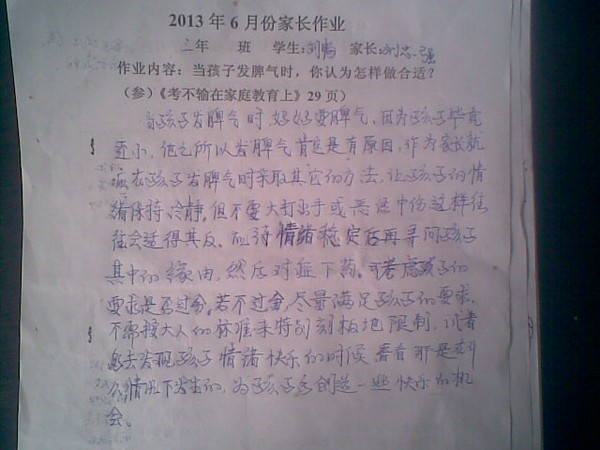 2013年6月份家长作业
三年 班 学生:刘 家长:刘
作业内容:当孩子发脾气时,你认为怎样做合适?
(参)《考不输在家庭教育上》29页)
当孩子发脾气时好好耍脾气,因为孩子毕竟
还小,他之所以发脾气肯定是有原因,作为家长就
应在孩子发脾气时采取其它的方法,让孩子的情
绪保持冷静,但不要大打出手或恶语中伤这样往
往会适得其反。应待情绪稳定后再寻问孩子
其中的缘由,然后对症下药。可考虑孩子的
要求是否过分,若不过分,尽量满足孩子的要求,
不需按大人的标准来特别刻板地限制,试着
去发现孩子情绪快乐的时候看看那是在什
么情况下发生的,为孩子多创造一些快乐的机
会。